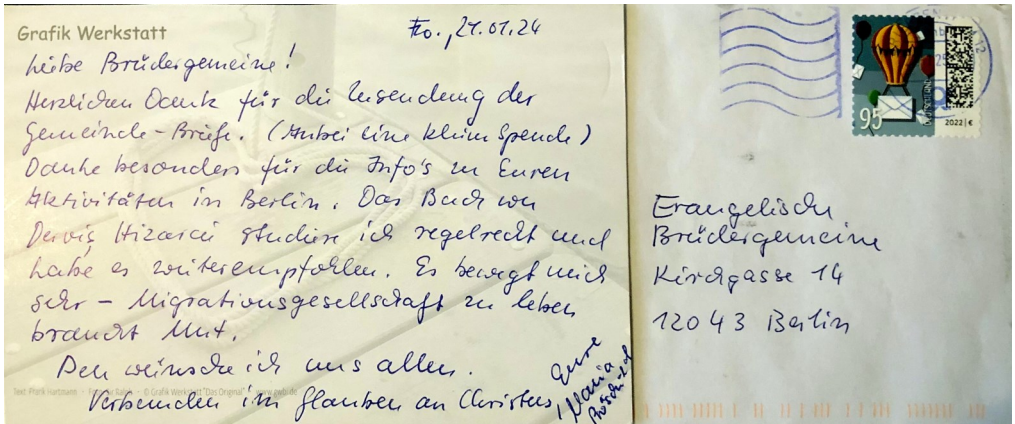 Grafik Werkstatt
Fo., 21.01.24
Liebe Brüdergemeine!
Herzlichen Dank für die Zusendung der
Gemeinde-Briefe. (Anbei eine kleine Spende)
Danke besonders für die Info's zu Euren
Aktivitäten in Berlin. Das Buch von
Derviş Hizarci studiere ich regelrecht und
habe es weiterempfohlen. Es bewegt mich
sehr – Migrationsgesellschaft zu leben
braucht Mut.
Den wünsche ich uns allen.
Verbunden im Glauben an Christus,
Eure
Maria
Text: Frank Hartmann
© Grafik Werkstatt "Das Original"
95
DEUTSCHLAND
2022 | €
Evangelische
Brüdergemeine
Kirchgasse 14
12043 Berlin